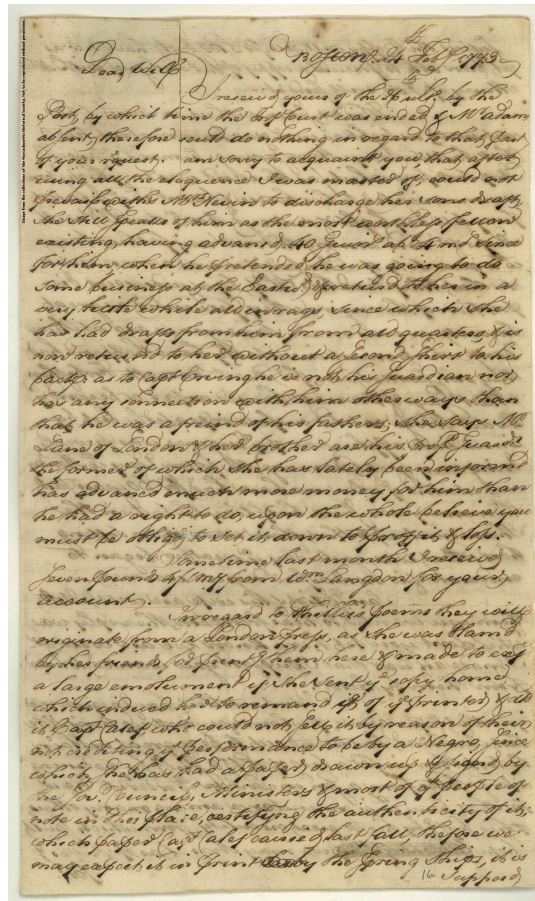 Boston 24 Feby 1773
Dear Will
I receivd yours of the ulto by the
Post, by which time the Court was ended & Mr Adams
absent, therefore could do nothing in regard to that part
of your request. am sorry to acquaint you that, after
using all the eloquence I was master of, could not
prevail with Mrs to discharge her sons draft,
She Still Speaks of him as the most worthless
existing, having advancd 40 abt 4 mo since
for him, when he pretended he was going to do
some business at the Eastwd, & returnd to her in a
very little while all in rags, since which she
has had drafts from him from all quarters, & is
now returnd to her without a second Shirt to his
back, as to Capt Erving he is not his Guardian nor
has any connection with him otherways than
that he was a freind of his fathers; She says Mr
Lane of London & her brother are his Guards
the former of which She has lately been informd
has advancd much more money for him than
he had a right to do, upon the whole believe you
must be obligd to set it down to profit & loss.
Sometime last month I receivd
Seven pounds from Wm Langdon for your
account.
In regard to Phillis's poems they will
originate from a London press, as she was blamd
by her friends for printg them here & made to expt
a large emolument if she sent ye copy home
which induced her to remand it of ye printer & dld
it Capt Calef, who could not sell it by reason of their
not crediting ye performance to be by a Negro, since
which she has had a paper drawn up & signd by
the Gov. Council, Ministers & most of ye people of
note in this place, certifying the authenticity of it;
which paper Capt Calef carried last fall, therefore we
may expect it in print by the Spring Ships, it is
supposd
16
Image from the collections of the Massachusetts Historical Society. Not to be reproduced without permission.